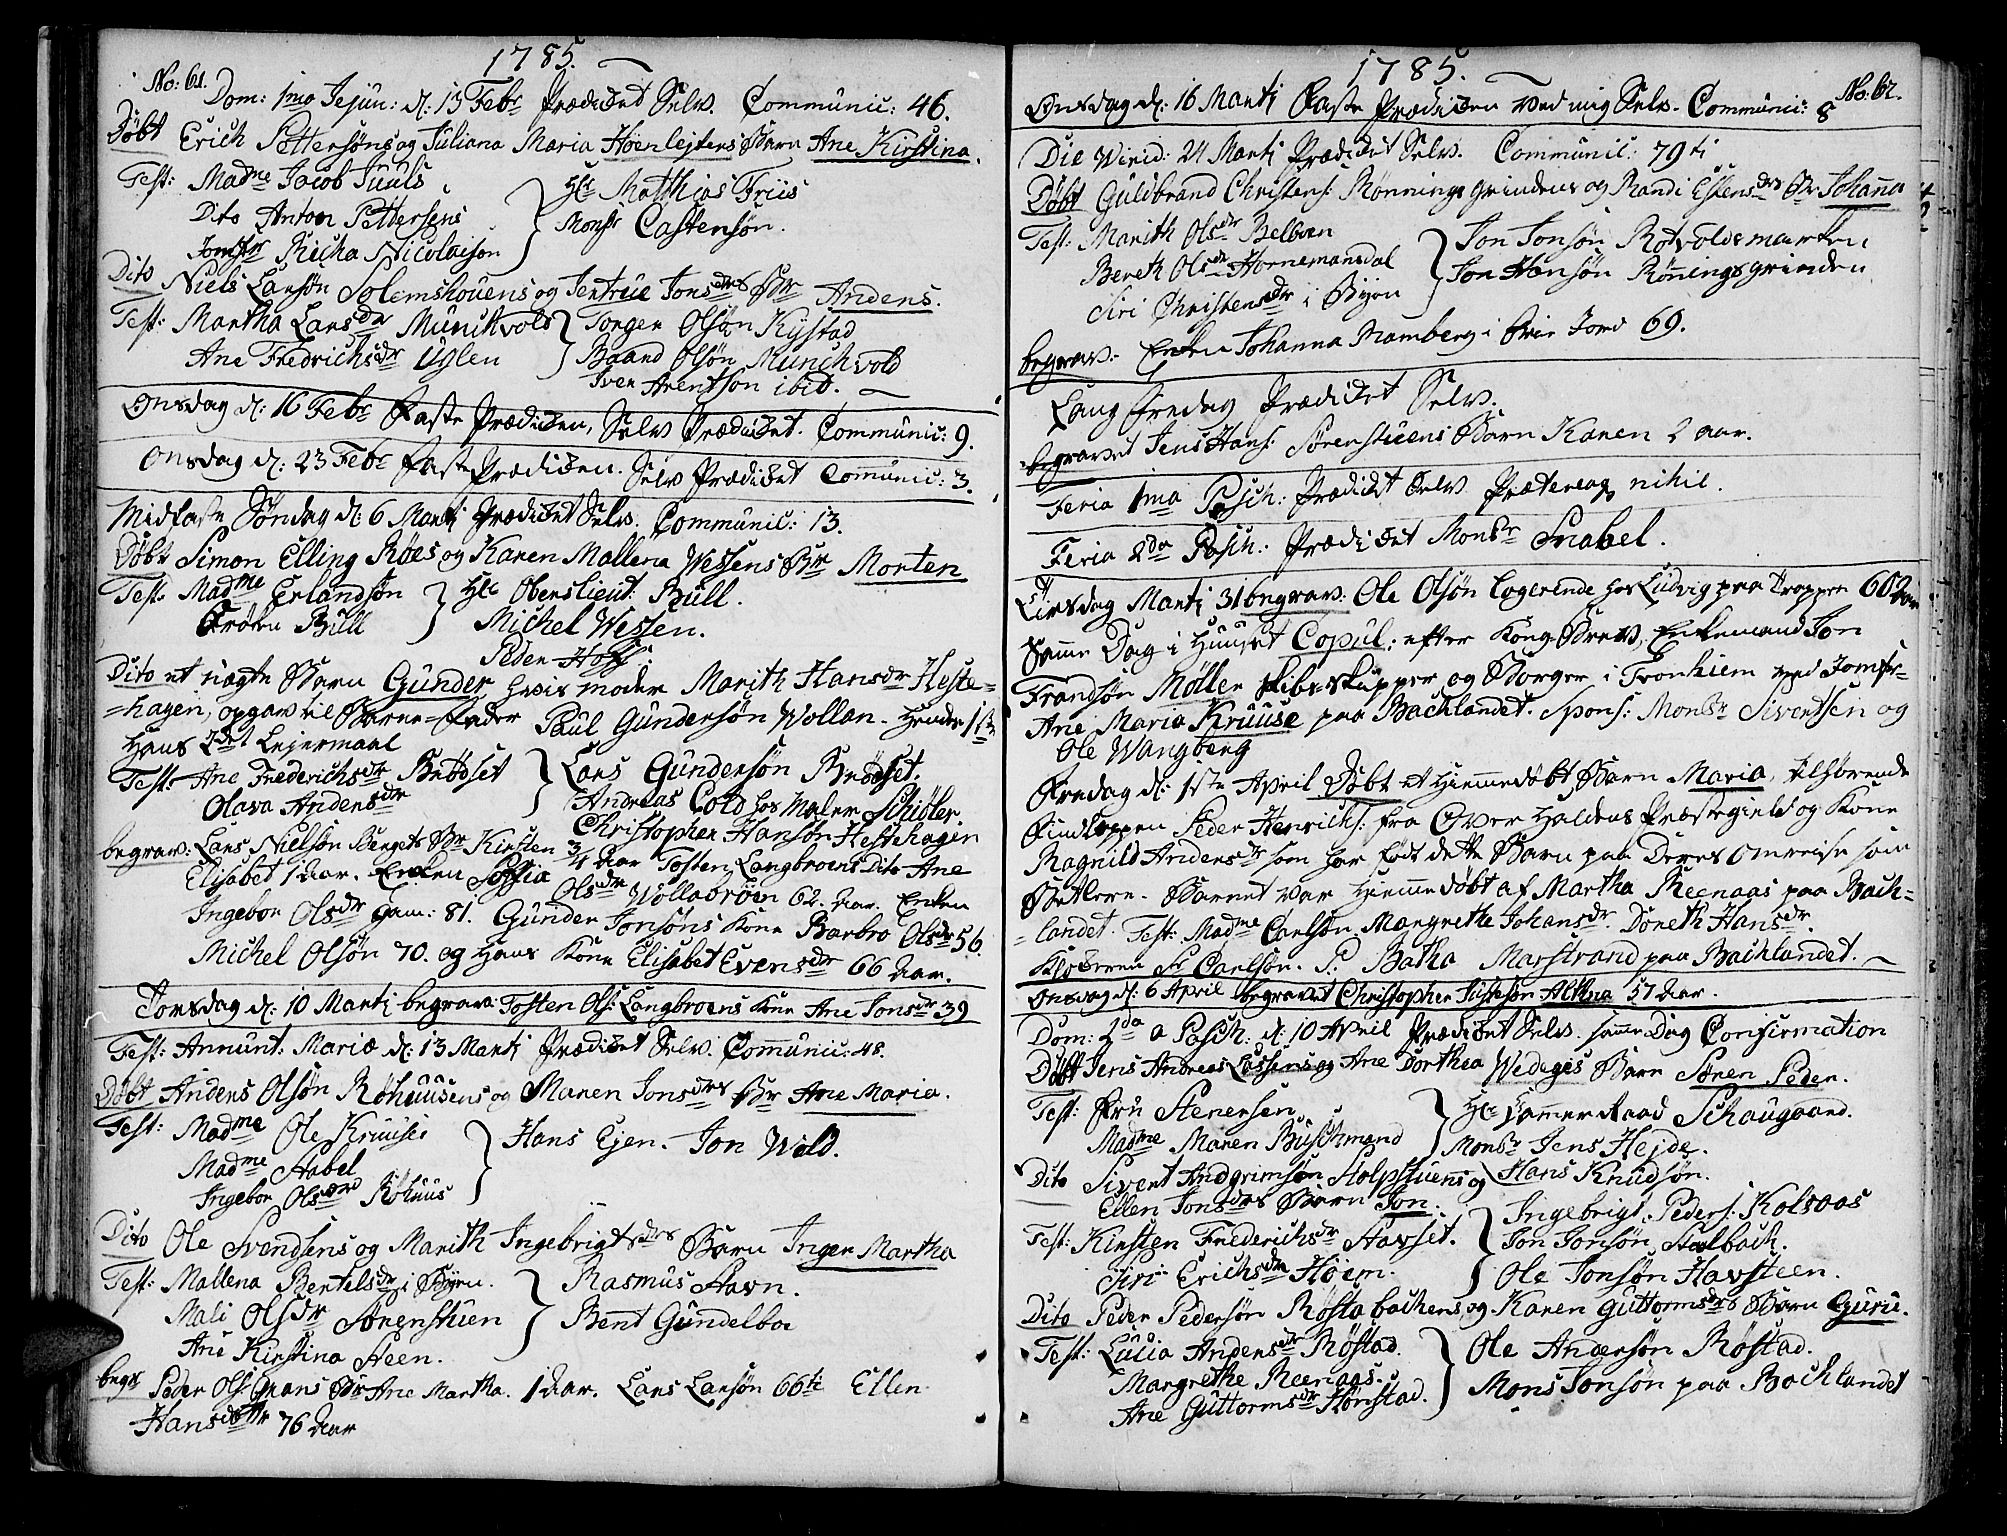 1785.
No: 61.
Dom: 1mo Jejun: d: 13 Febr Prædicket Selv. Communic: 46.
Døbt Erich Pettersøns og Juliana Maria Høenlejters Barn Ane Kirstina.
Test: Madme Jacob Juuls
Dito Anton Pettersens
Jomfr Micha Nicolaison
Hr Matthias Friis
Monsr Castensøn.
Dito Niels Larsøn Solemshouens og Jentrue Jonsdrs Br Anders.
Test: Martha Larsdr Munckvold
Ane Fredrichsdr Uglen
Torger Olsøn Kystad
Baard Olsøn Munchvold
Iver Arentson ibid.
Onsdag d: 16 Febr Faste Prædicken, Selv Prædicket. Communic: 9.
Onsdag d: 23 Febr faste Prædicken. Selv Prædicket Communic: 3.
Midfaste Søndag d: 6 Martj Prædicket Selv. Communic: 13.
Døbt Simon Elling Røes og Karen Mallena Wessens Br Morten
Test: Madme Erlandsøn
Frøken Bull
Hr Oberstlieut: Bull.
Michel Wessen.
Peder Hoff:
Dito et uægte Barn Gunder hvis moder Marith Hansdr Heste=
=hagen, opgav til Barne-fader Paul Gundersøn Wollan. hendes 1ste
Hans 2det Lejermaal
Test: Ane Frederichsdr Brødset
Olava Andersdr
Lars Gundersøn Brødset.
Andreas Cold hos Maler Schiøler.
Christopher Hansøn Hestehagen
begrav: Lars Nielsøn Bergets Br Kirsten 3/4 Aar Tosten Langbroens Dito Ane
Elisabet 1 Aar. Enken Sophia Olsdr Wollabroen 62. Aar. Enken
Ingebor Olsdr Gam: 81. Gunder Jonsøns kone Barbro Olsdr 56
Michel Olsøn 70. og Hans kone Elisabet Evensdr 66 Aar.
Torsdag d: 10 Martj begrav: Tosten Ols: Langbroens kone Ane Jonsdr 39
Fest: Annunt: Mariæ d: 13 Martj Prædicket Selv. Communic: 48.
Døbt Anders Olsøn Røhuusens og Maren Jonsdrs Br Ane Maria.
Test: Madme Ole Kruuses
Madme Stabel
Ingebor Olsdr Røhuus
Hans Ejen. Jon Wold.
Dito Ole Svendsens og Marith Ingebrigtsdrs Barn Inger Martha
Test: Mallena Bertelsdr i Byen.
Mali Olsdr Sorenstuen
Ane Kirstina Steen.
Rasmus Stavn.
Bent Gundelboe
begr Peder Ols: Grans Br Ane Martha. 1 Aar. Lars Larsøn 66ti Ellen
Hansdotr 76 Aar
1785.
No: 62.
Onsdag d: 16 Martj Faste Prædicken ved mig Selv. Communic: 8
Die Virid: 24 Martj Prædicket Selv. Communic: 79ti
Døbt Guldbrand Christens: Rønnings grindens og Randi Estensdrs Br Johanna
Test: Marith Olsdr Belboen
Bereth Olsdr Hornemansdal
Siri Christensdr i Byen
Jon Jonsøn Rotvoldsmarken
Jon Hansøn Rønningsgrinden
begrav: Enken Johanna Bramberg i Frie Jord 69.
Lang fredag Prædicket Selv.
begravet Jens Hans: Sørenstuens Barn Karen 2 aar.
Feria 1ma Pasch: Prædiket Selv Prætereaq nihil.
Feria 2da Pasch: Prædicket Monsr Snabel.
Torsdag Martj 31 begrav: Ole Olsøn logerende hos Ludvig paa Trappen 60 Aar
Samme Dag i Huuset Copul: efter Kong: Brev, Enkemand Jon
Frandsøn Møller skibs skipper og Borger i Tronhiem med Jomfr
Ane Maria Kruuse paa Bachlandet. Spons: Monsr Sivertsen og
Ole Wangberg
Fredag d: 1ste April Døbt et Hiemmedøbt Barn Maria, tilhørende
Findlappen Peder Henrichs: fra Over Haldens Præstegield og Kone
Ragnild Andersdr som har født dette Barn paa Deres Omreise som
Betlere. Barnet var Hiemmedøbt af Martha Reenaas paa Bach=
=landet. Test: Madme Carlsøn, Margrethe Johansdr. Doreth Hansdr.
Klockeren Sr Carlsøn. P. Batha Marstrand paa Bachlandet.
Onsdag d: 6 April begravet Christopher Justesøn Altna 57 Aar.
Dom: 2da a Pasch: d: 10 April Prædicket Selv. samme Dag Confirmation
Døbt Jens Andreas Lossens og Ane Dorthea Wedeges Barn Søren Peder.
Test: Fru Stenersen
Madme Maren Buschmand
Hr Kammer Raad Schaugaard.
Monsr Jens Hejde.
Hans Knudsøn.
Dito Sivert Andgrimsøn Stolpstuens og
Ellen Jonsdrs Barn Jon.
Test: Kirsten Frederichsdr Stavset.
Siri Erichsdr Høiem.
Ingebrigt Peders: Kolsaas
Jon Jonsøn Stalbach.
Ole Jonsøn Havsteen.
Dito Peder Pedersøn Røstabachens og Karen Guttormsdrs Barn Guru.
Test: Lucia Andersdr Røstad.
Margrethe Reenaas.
Ane Guttormsdr Hønstad.
Ole Andersøn Røstad.
Mons Jonsøn paa Bachlandet